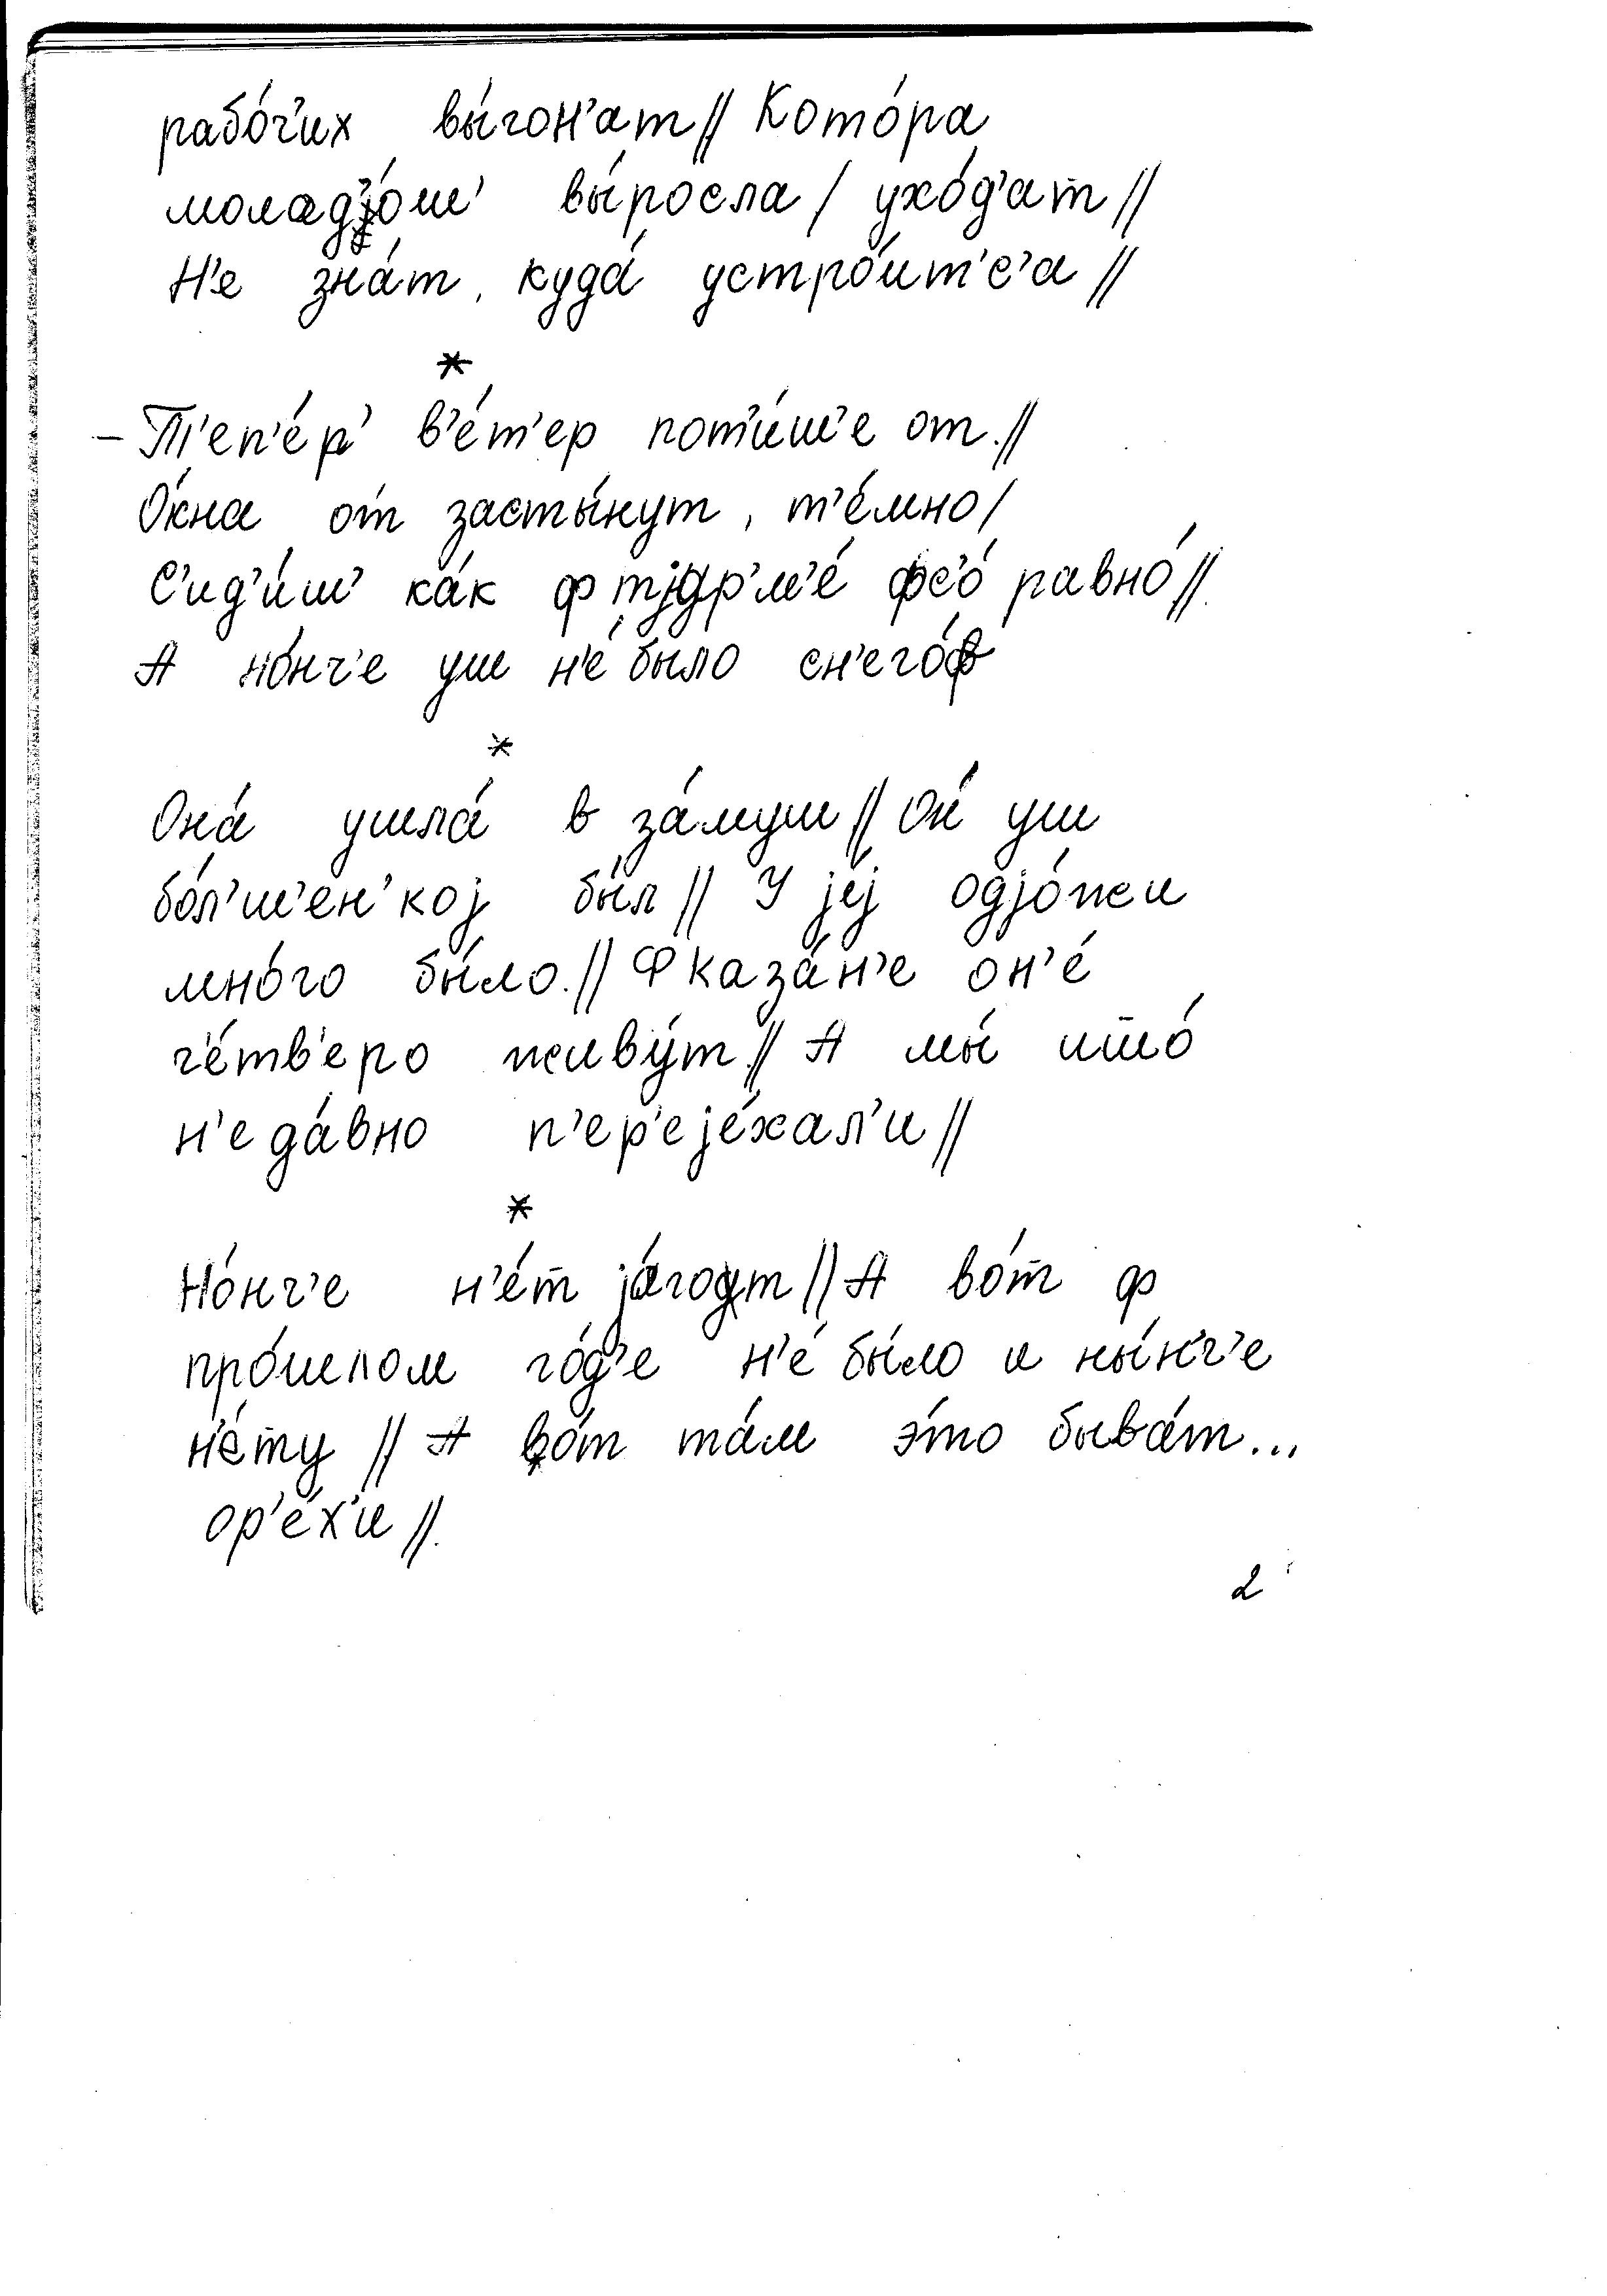 рабо́ч'их вы́гон'ат // Кото́ра
молад'о́ш' вы́росла / ухо́д'ат //
Н'е зна́т, куда́ устро́ит'с'а //
*
– Т'еп'е́р' в'е́т'ер пот'и́ш'е от. //
О́кна о́т засты́нут, т'е́мно /
С'ид'и́ш' ка́к ф т'урм'е́ фс'о́ равно́ //.
А но́нч'е уш н'е́ было сн'его́ф
*
Она́ ушла́ в за́муш // О́н уш
бо́л'ш'ен'кој бы́л // У је́ј одјо́жи
мно́го бы́ло. // Ф каза́н'е он'е́
ч'е́тв'еро живу́т // А мы́ што́
н'еда́вно п'ер'еје́хал'и //
*
Но́нч'е н'е́т ја́гот // А во́т ф
про́шлом го́д'е н'е́ бы́ло и ны́н'ч'е
н'е́ту // А во́т та́м э́то быва́т...
ор'е́х'и //.
2